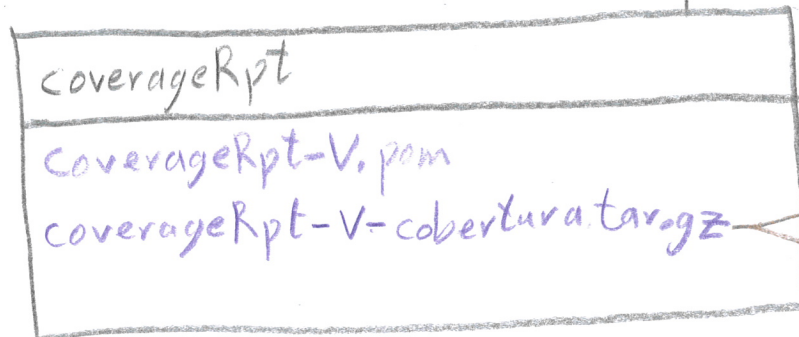 coverageRpt
coverageRpt-V.pom
coverageRpt-V-cobertura.tar.gz